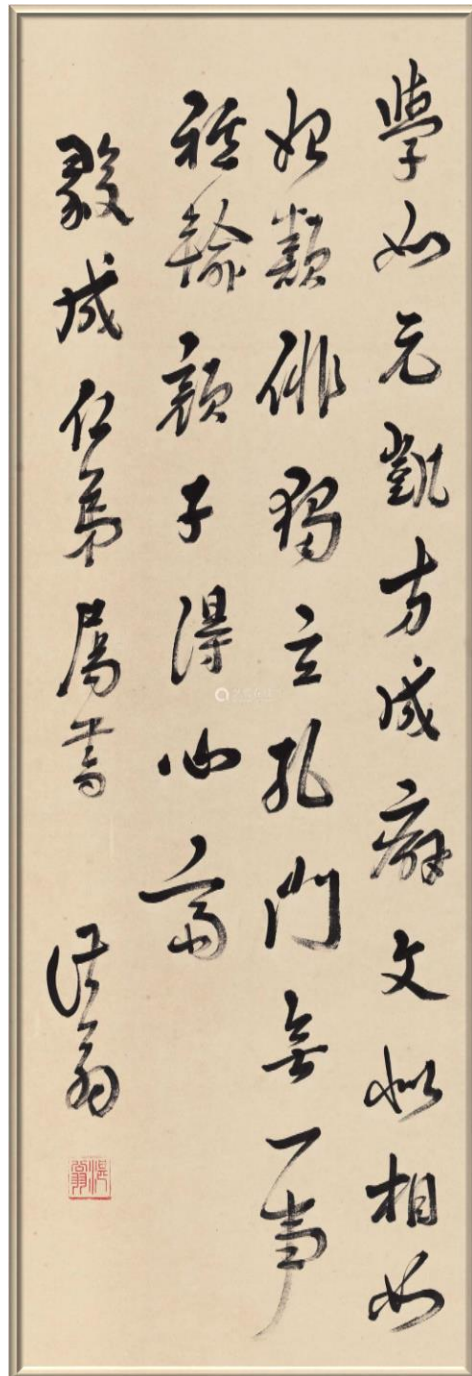 學如元凱方成癖文似相如
始類俳獨立孔門無一事
祗輸顏子得心齋
毅成仁弟屬書 湛翁
湛翁